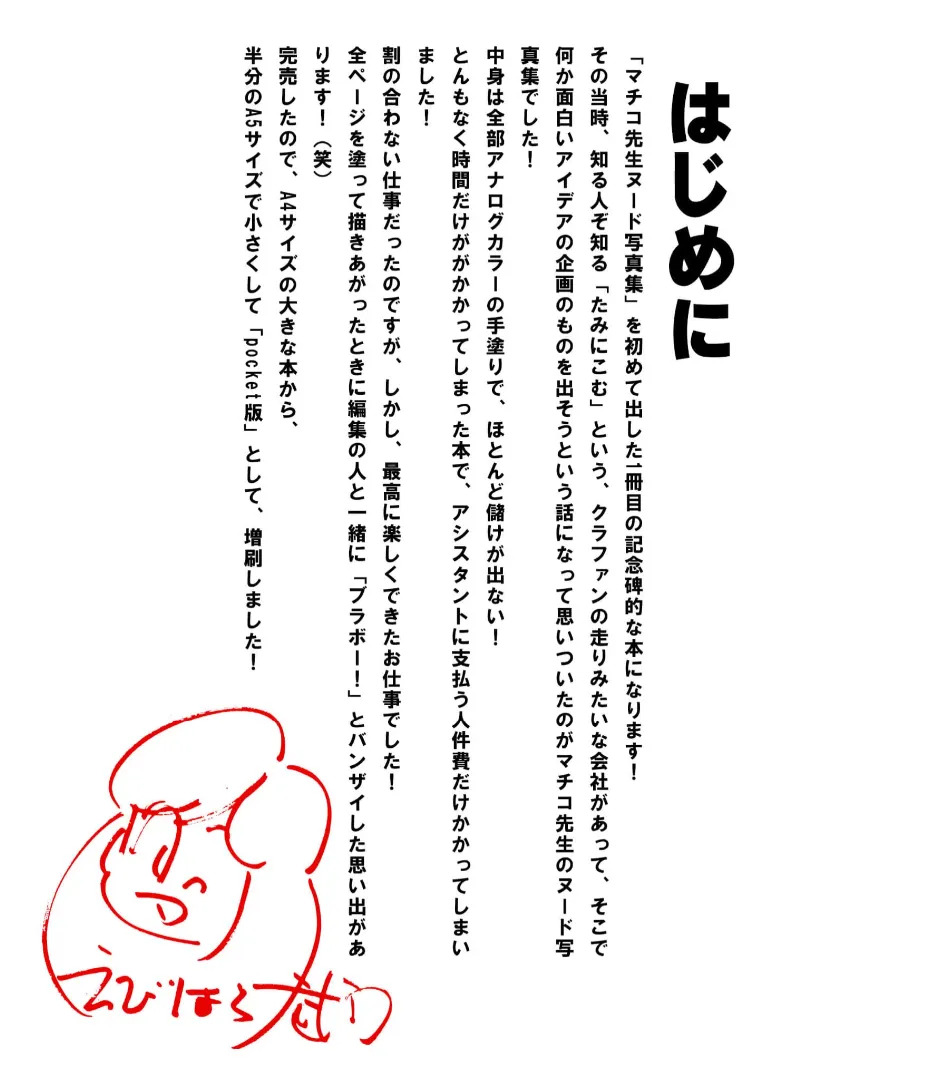 はじめに
「マチコ先生ヌード写真集」を初めて出した一冊目の記念碑的な本になります！
その当時、知る人ぞ知る「たみにこむ」という、クラファンの走りみたいな会社があって、そこで
何か面白いアイデアの企画のものを出そうという話になって思いついたのがマチコ先生のヌード写
真集でした！
中身は全部アナログカラーの手塗りで、ほとんど儲けが出ない！
とんもなく時間だけががかかってしまった本で、アシスタントに支払う人件費だけかかってしまい
ました！
割の合わない仕事だったのですが、しかし、最高に楽しくできたお仕事でした！
全ページを塗って描きあがったときに編集の人と一緒に「ブラボー！」とバンザイした思い出があ
ります！（笑）
完売したので、A4サイズの大きな本から、
半分のA5サイズで小さくして「pocket版」として、増刷しました！
えびはら武司